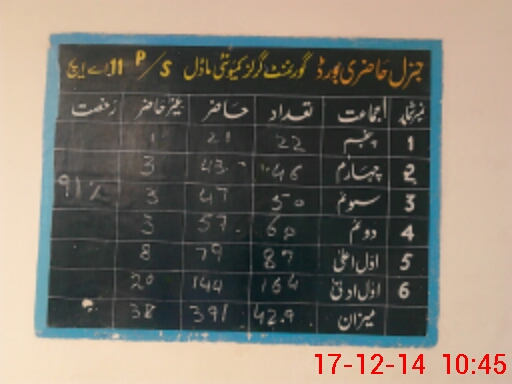 جنرل حاضری بورڈ گورنمنٹ گرلز کمیونٹی ماڈل P/S 11 اے ایچ
نمبر شمار جماعت تعداد حاضر غیر حاضر رخصت
1 پنجم 22 21 1
2 چہارم 46 43 3
3 سوئم 50 47 3 91%
4 دوئم 60 57 3
5 اول اعلیٰ 87 79 8
6 اول ادنیٰ 164 144 20
میزان 429 391 38
17-12-14 10:45